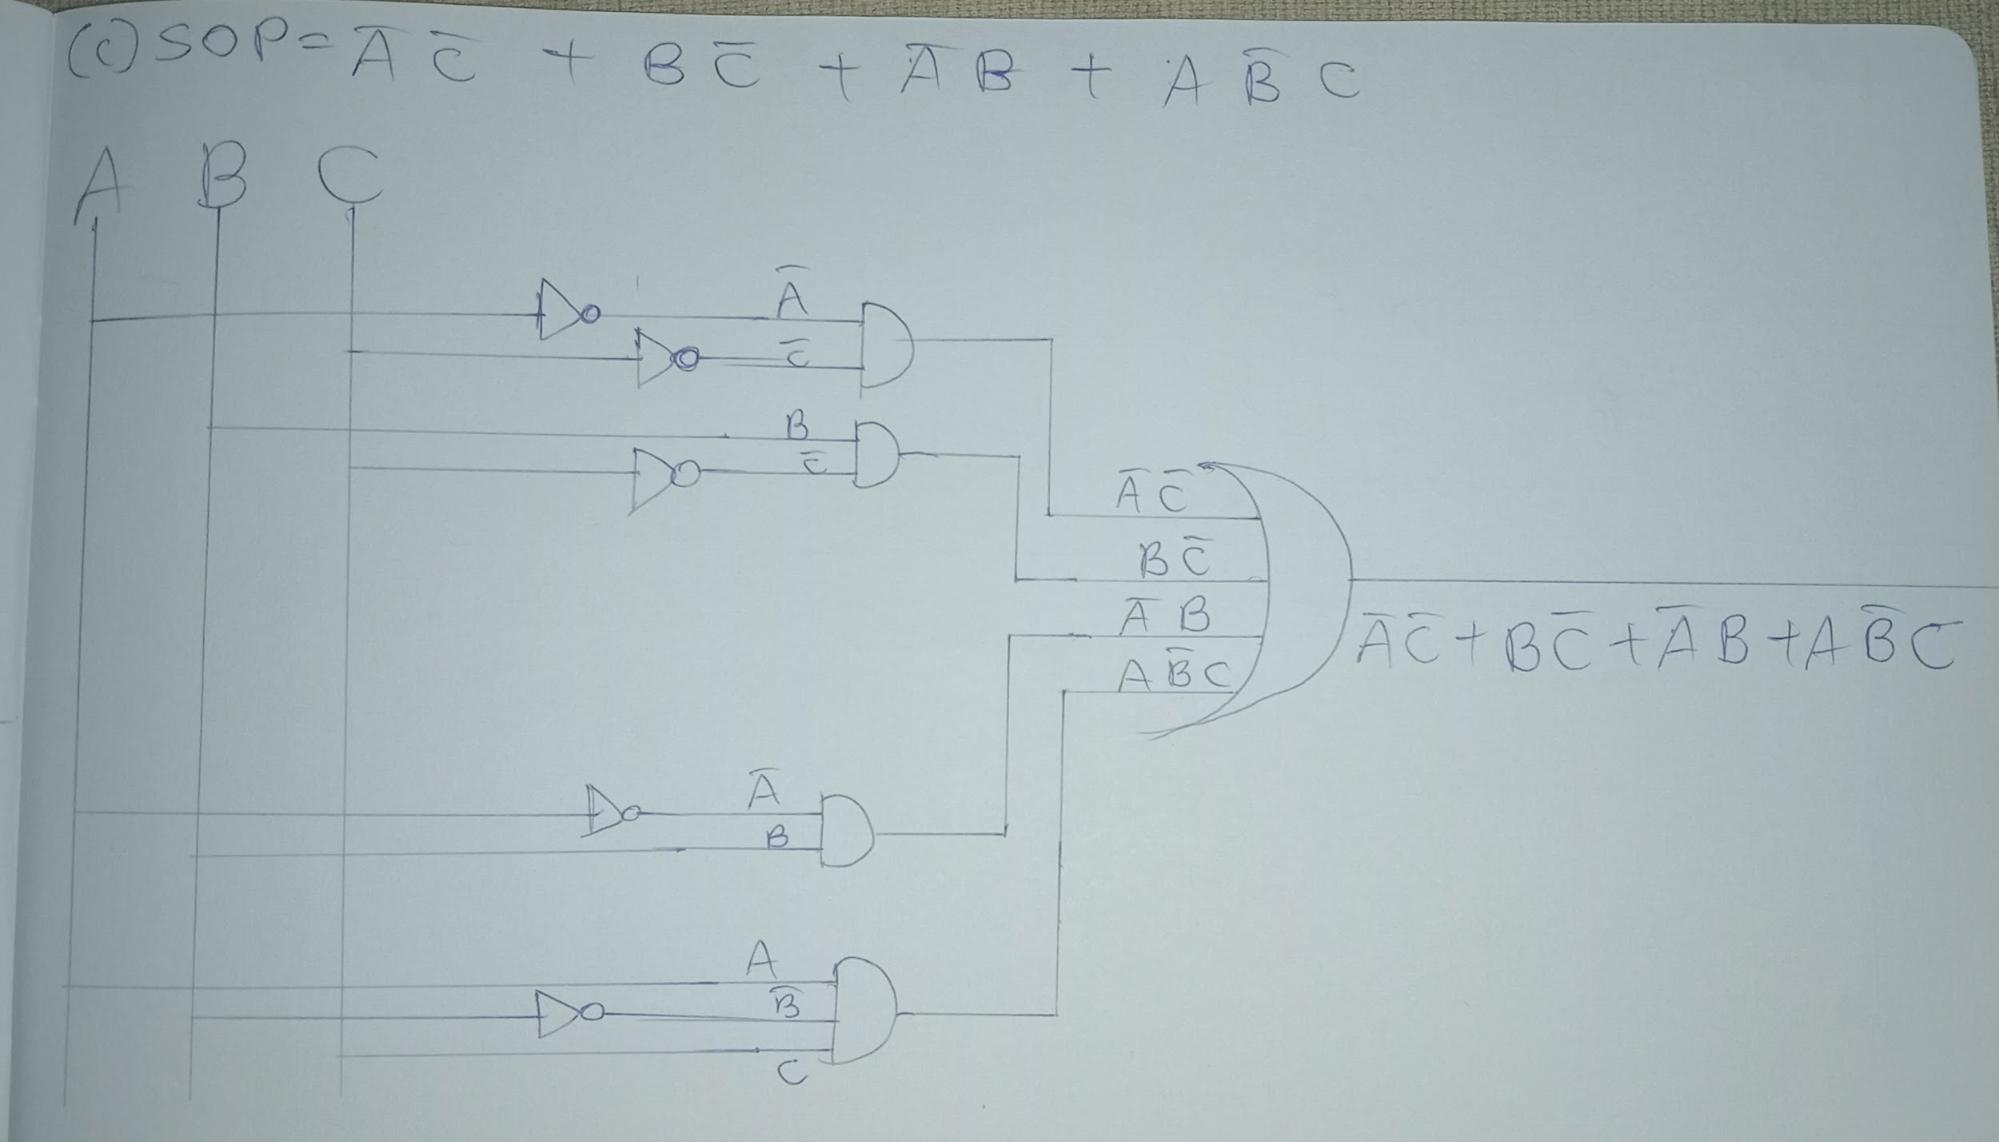 (c) SOP = A̅ C̅ + B C̅ + A̅ B + A B̅ C
A B C
A̅
C̅
B
C̅
A̅ C̅
B C̅
A̅ B
A B̅ C
A̅ C̅ + B C̅ + A̅ B + A B̅ C
A̅
B
A
B̅
C